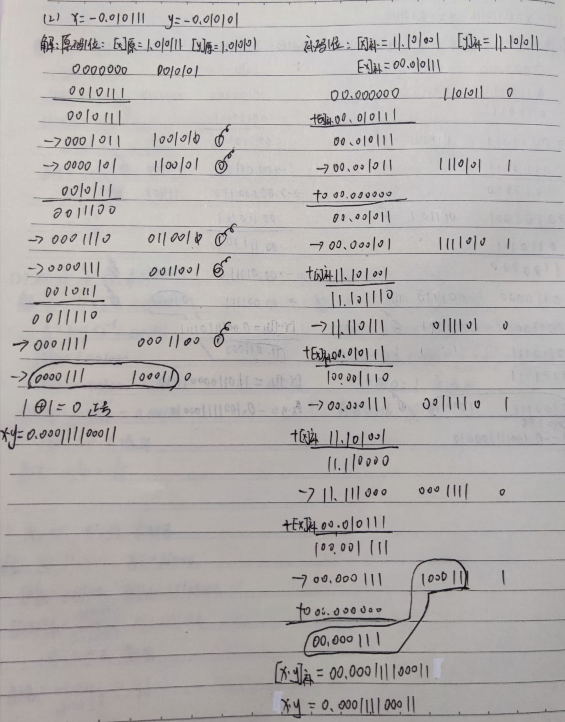 (2) x=-0.010111 y=-0.010101
解:原码1位: [x]原=1.010111 [y]原=1.010101
0000000 010101
0010111
0010111
→0001011 101010 ①
→0000101 110101 ②
0010111
0011100
→0001110 011010 ①
→0000111 001101 ②
0010111
0011110
→0001111 000110 ①
→0000111 100011 0
1⊕1=0 正号
x·y=0.000111100011
补码1位: [x]补=11.101001 [y]补=11.101011
[-x]补=00.010111
00.000000 1101011 0
+[-x]补00.010111
00.010111
→00.001011 1110101 1
+0 00.000000
00.001011
→00.000101 1111010
+[x]补11.101001
11.101110
→11.110111 0111101 0
+[-x]补00.010111
100.001110
→00.000111 0011110 1
+[x]补 11.101001
11.110000
→11.111000 0001111 0
+[-x]补00.010111
100.001111
→00.000111 100011 1
+0 00.000000
00.000111
[x·y]补=00.000111100011
x·y=0.000111100011